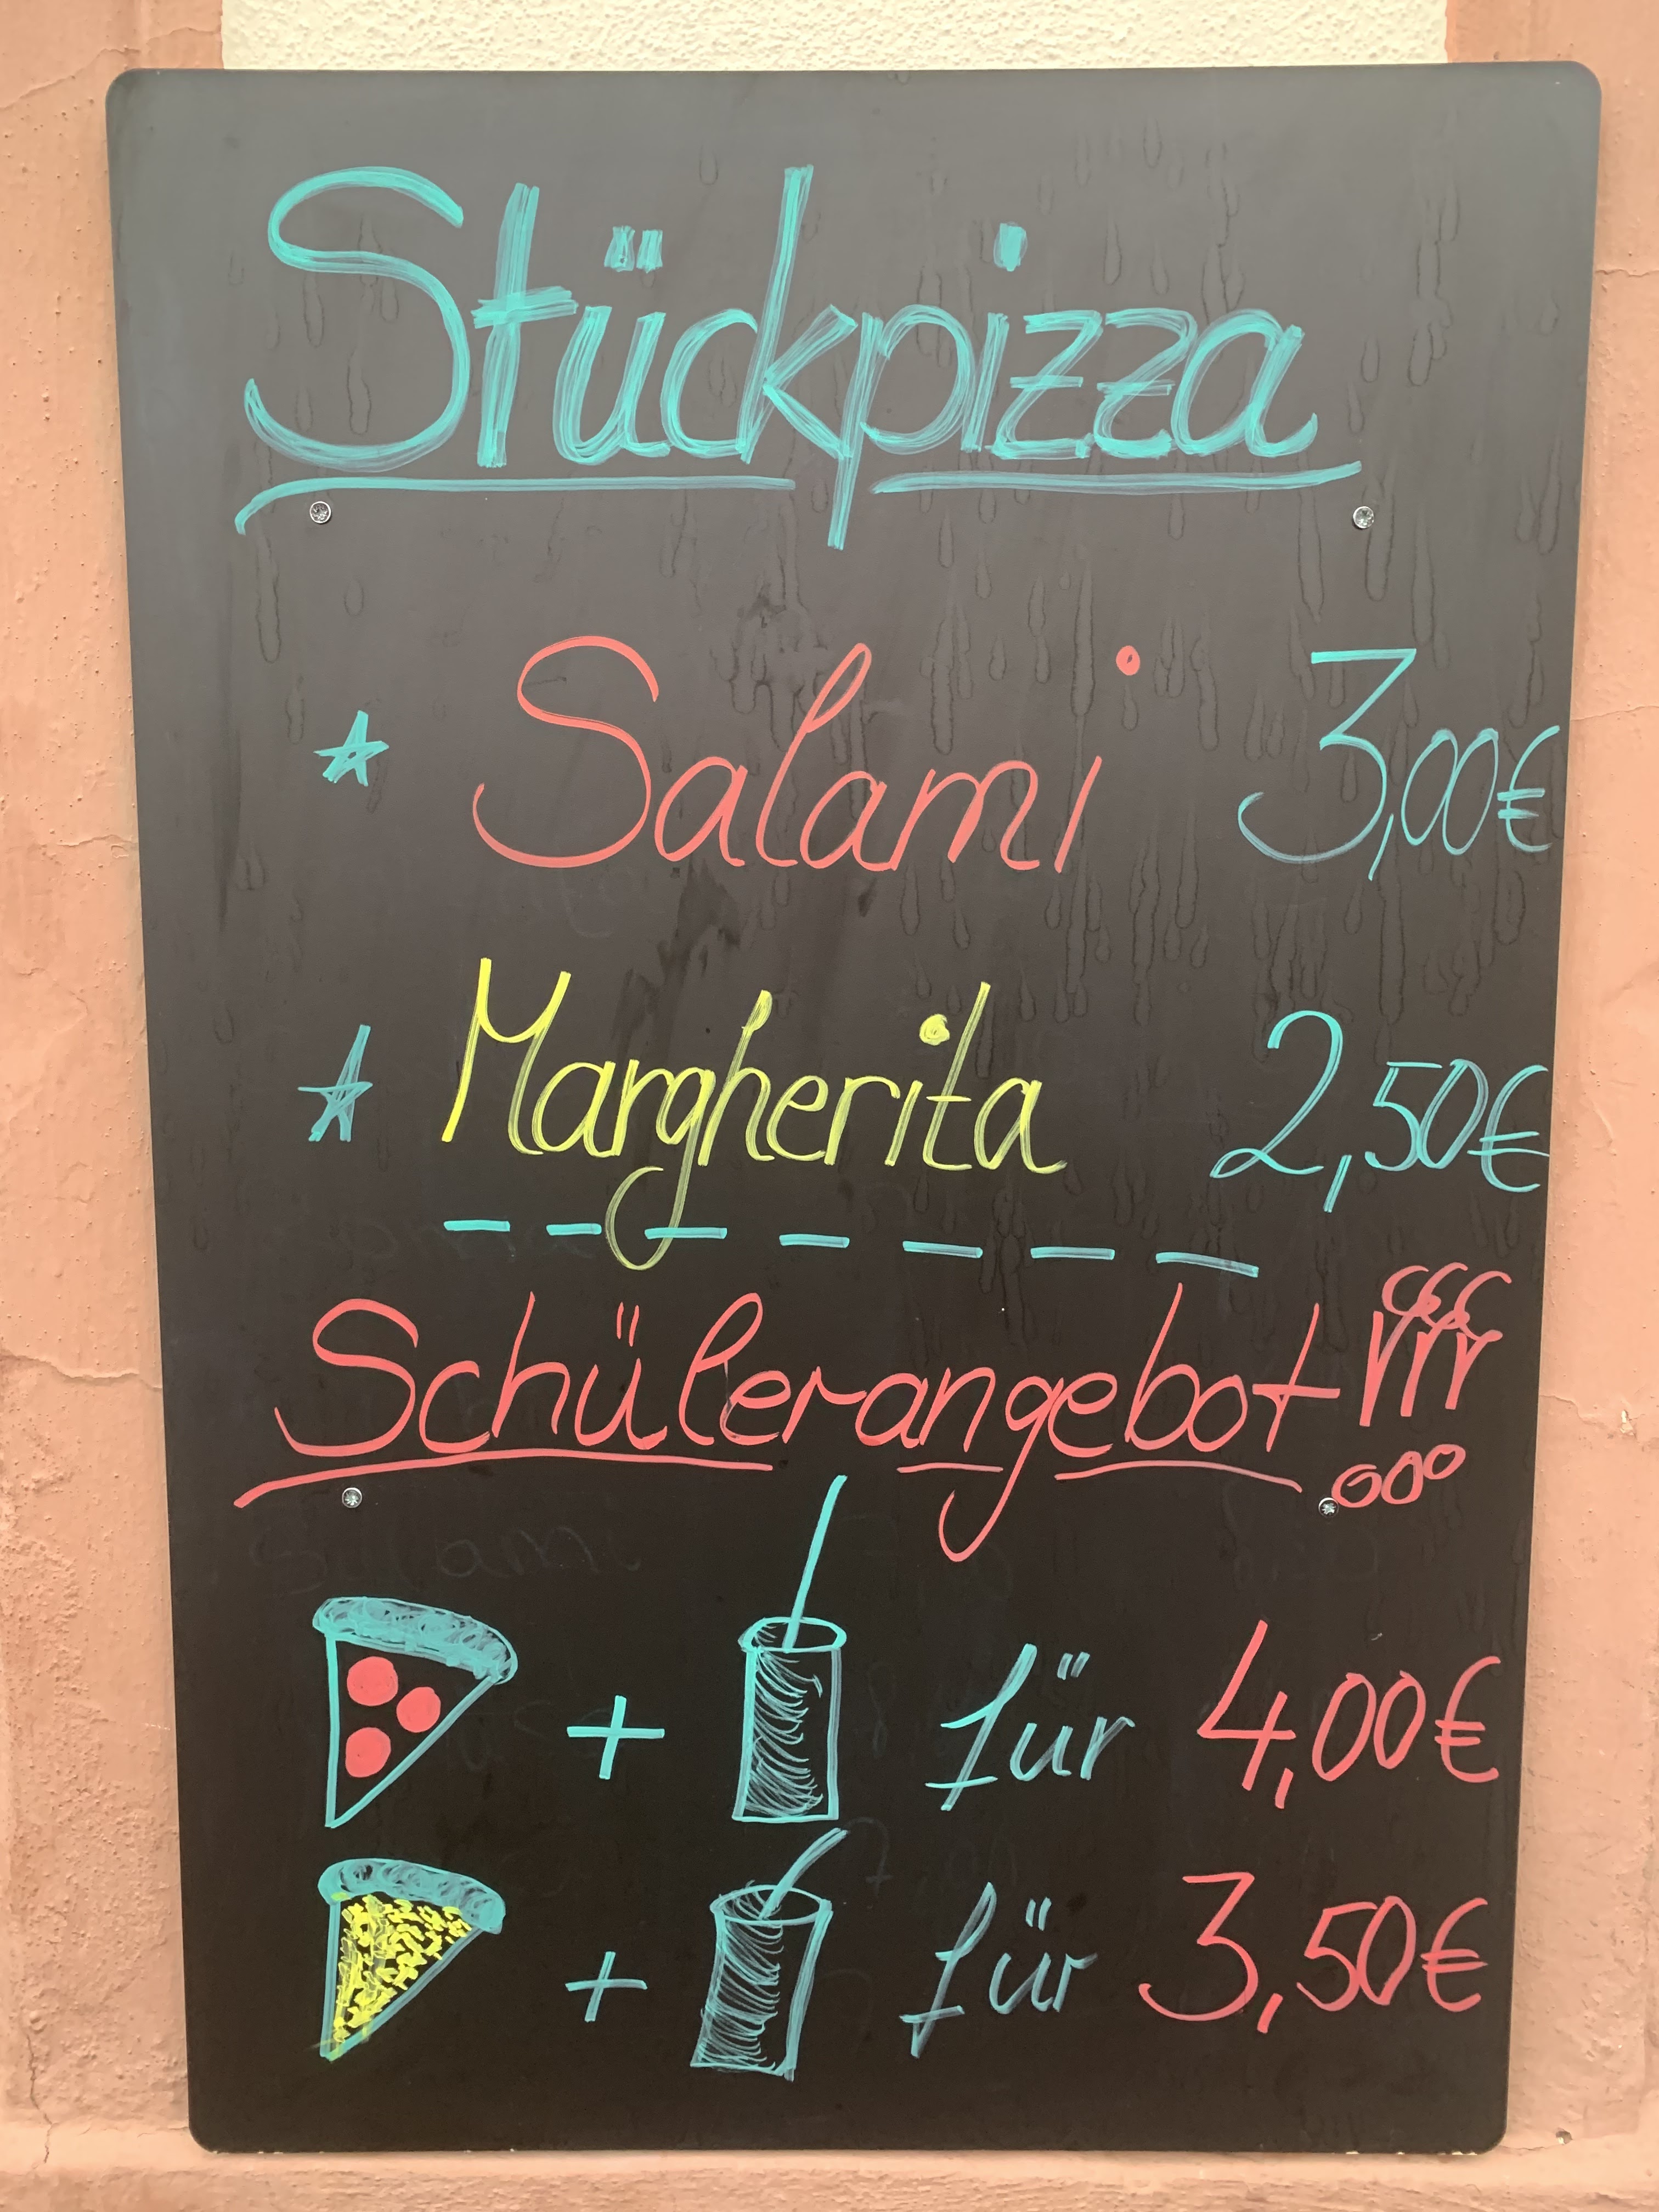 Stückpizza
Salami 3,00€
Margherita 2,50€
Schülerangebot!!!
+ für 4,00€
+ für 3,50€